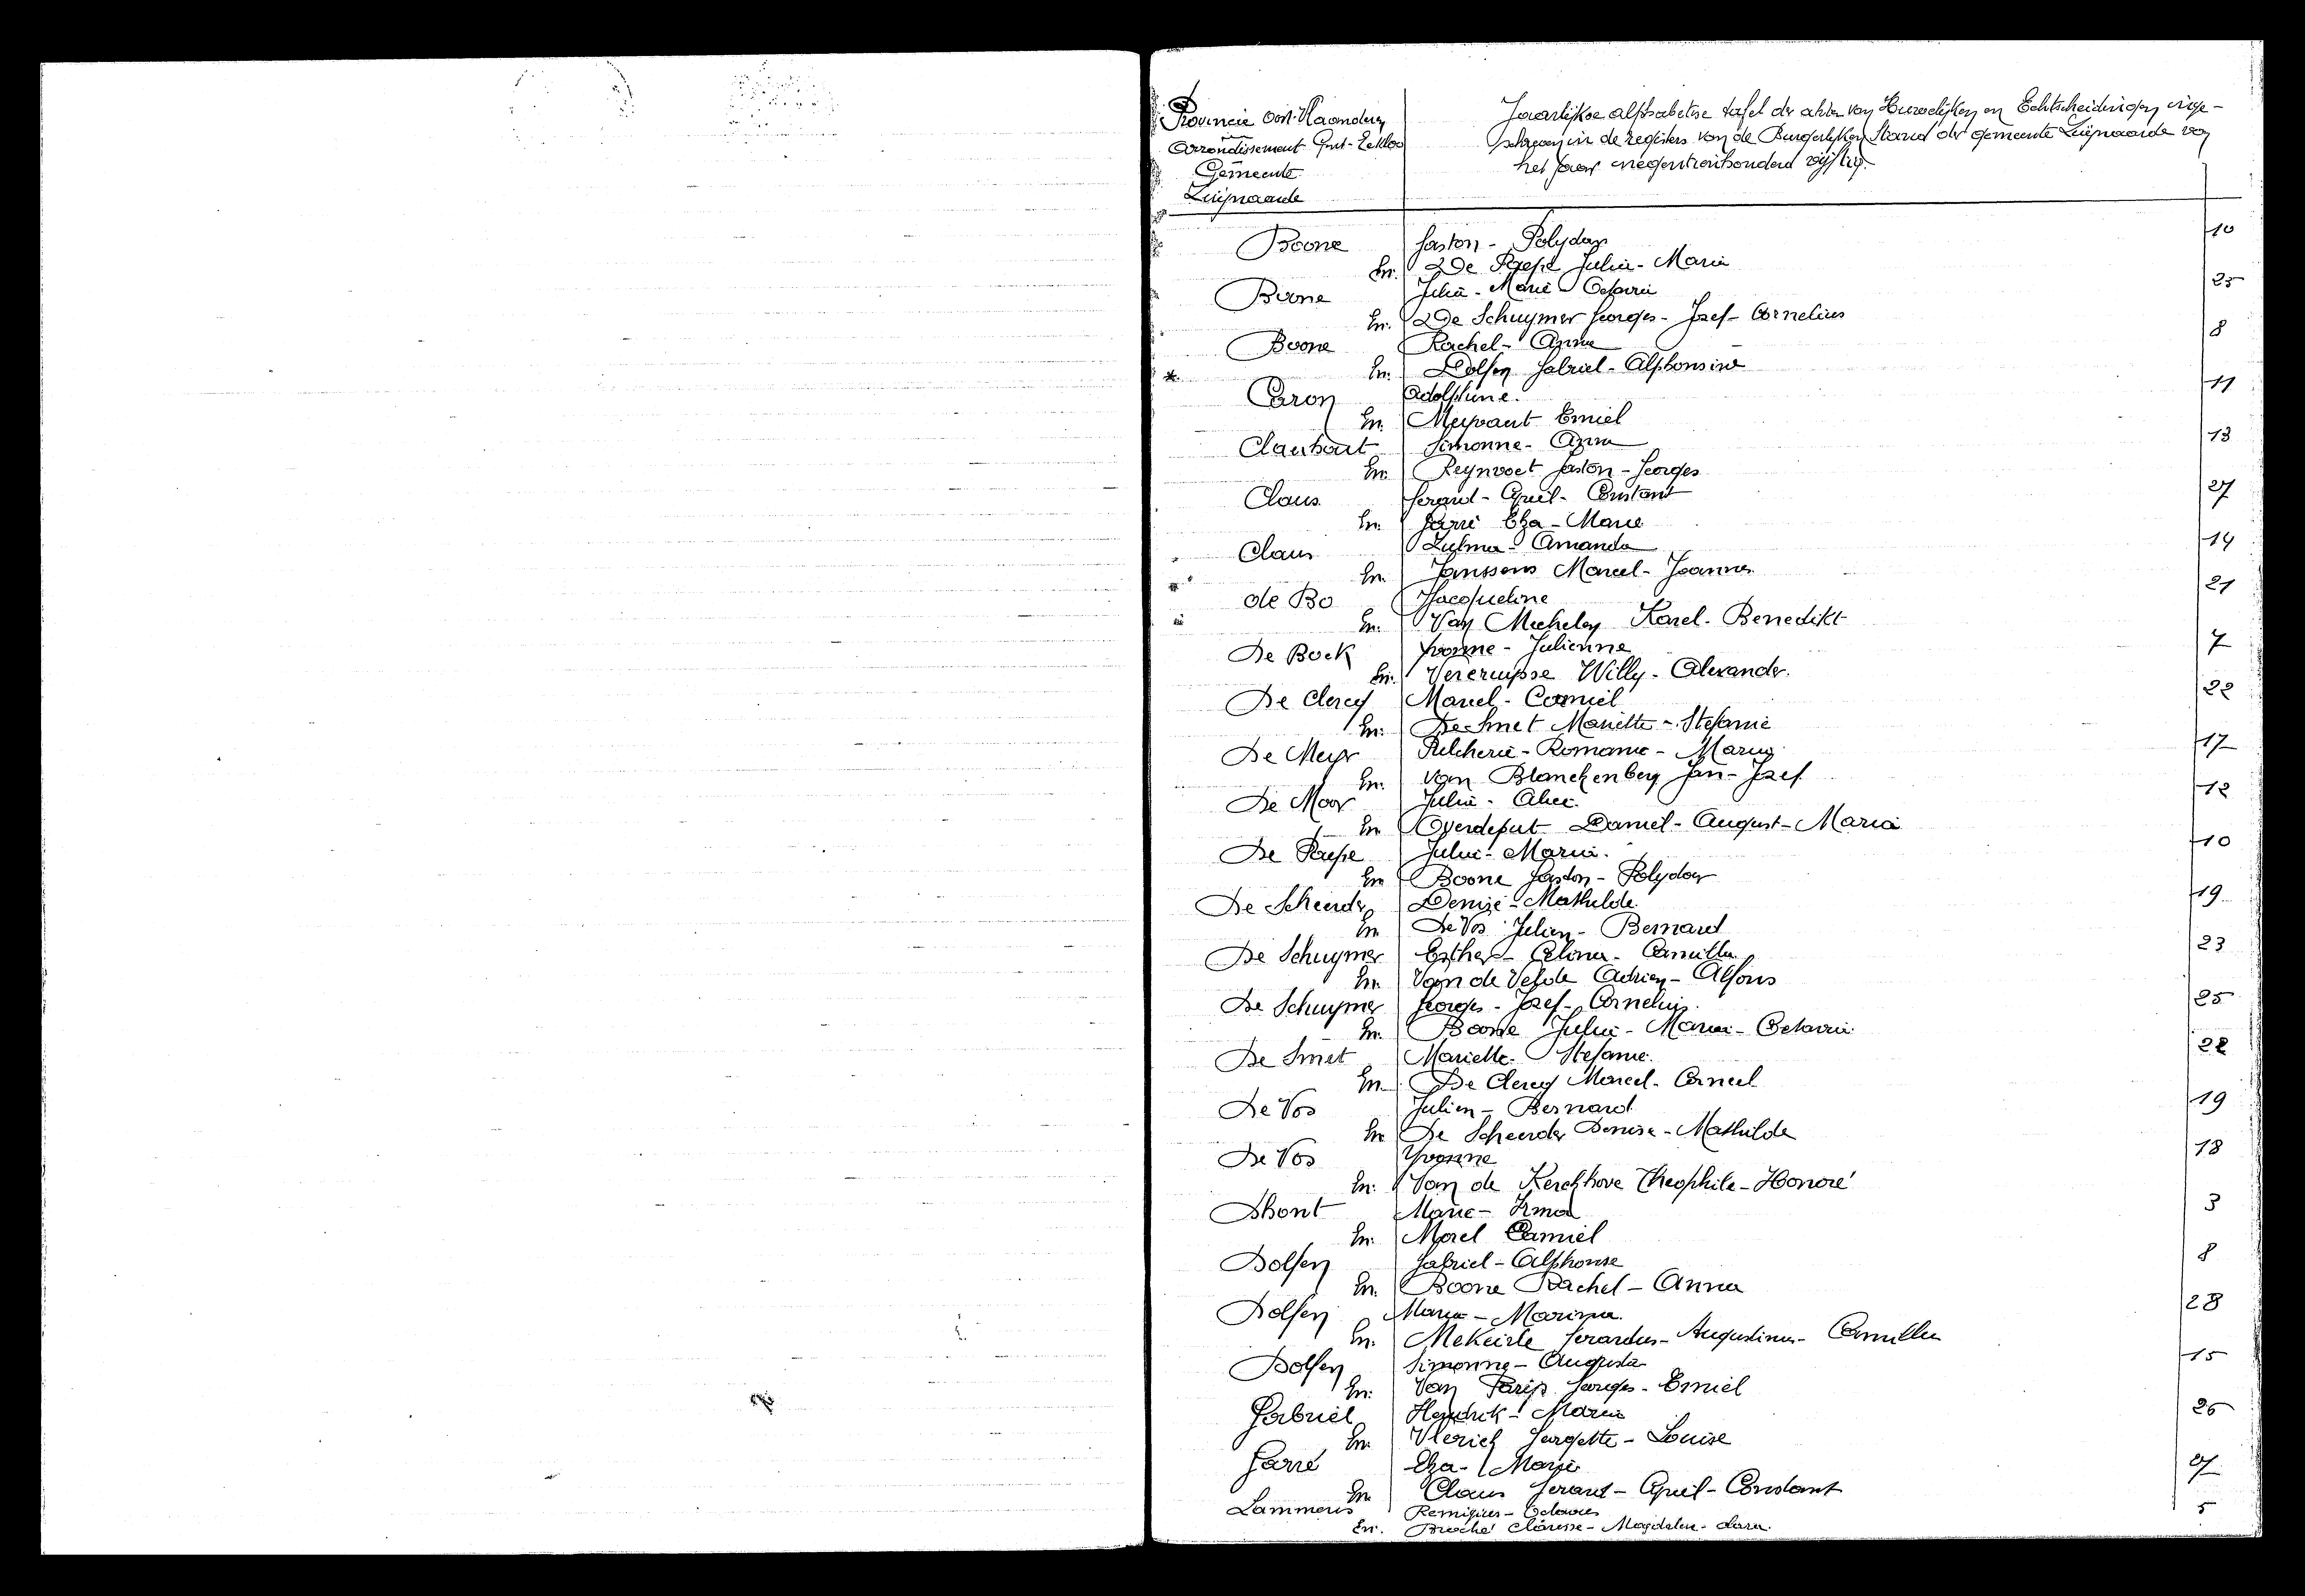 Provincie Oost-Vlaanderen
Arrondissement Gent-Eekloo
Gemeente
Zwijnaarde
Jaarlijkse alphabetise tafel der akten van Huwelijken en Echtscheidingen inge-
schreven in de registers van de Burgerlijken Stand der gemeente Zwijnaarde van
het jaar negentienhonderd vijftig.
Boone Gaston - Polydoor 10
En. De Paepe Julia - Maria
Boone Julia - Maria Octavia 25
En. De Schuymer Georges - Jozef - Cornelius
Boone Rachel - Anna 8
En. Dolfen Gabriel - Alphonsine
Caron Adolphine. 11
En. Meyvaert Emiel
Clauhout Simonne - Anna 13
En. Reynvoet Gaston - Georges
Claus Gerard - Cyriel - Constant 27
En. Garré Elza - Marie
Claus Zulma - Amanda 14
En. Janssens Marcel - Joannes
de Bo Jacqueline 21
En. Van Mechelen Karel - Benedikt
De Bock Yvonne - Julienne 7
En. Vercruysse Willy - Alexander.
De Clercq Marcel - Corneel 22
En. De Smet Mariette - Stefanie
De Meyer Pulcherie - Romanie - Maria 17
En. van Blanckenberg Jan - Jozef
De Moor Julia - Alice. 12
En Overdeput Daniel - August - Maria
De Paepe Julia - Maria. 10
En Boone Gaston - Polydoor
De Scheerder Denise - Mathilde 19
En De Vos Julien - Bernard
De Schuymer Esther - Celina - Camilla 23
En. Van de Velde Adrien - Alfons
De Schuymer Georges - Jozef - Cornelius. 25
En. Boone Julia - Maria - Octavia
De Smet Mariette - Stefanie. 22
En De Clercq Marcel - Corneel
De Vos Julien - Bernard 19
En De Scheerder Denise - Mathilde
De Vos Yvonne 18
En. Van de Kerckhove Theophile - Honoré
Dhont Marie - Irma 3
En. Morel Camiel
Dolfen Gabriel - Alphonse 8
En. Boone Rachel - Anna
Dolfen Maria - Marina. 28
En. Mekeirle Gerardus - Augustinus - Camillus
Dolfen Simonne - Augusta 15
En. Van Parijs Georges - Emiel
Gabriel Hendrik - Maria 26
En. Vlerick Georgette - Louise
Garré Elza - Marie 27
En Claus Gerard - Cyriel - Constant
Lammens Remigius - Octavus 5
En. Broché Clarisse - Magdalena - Clara.